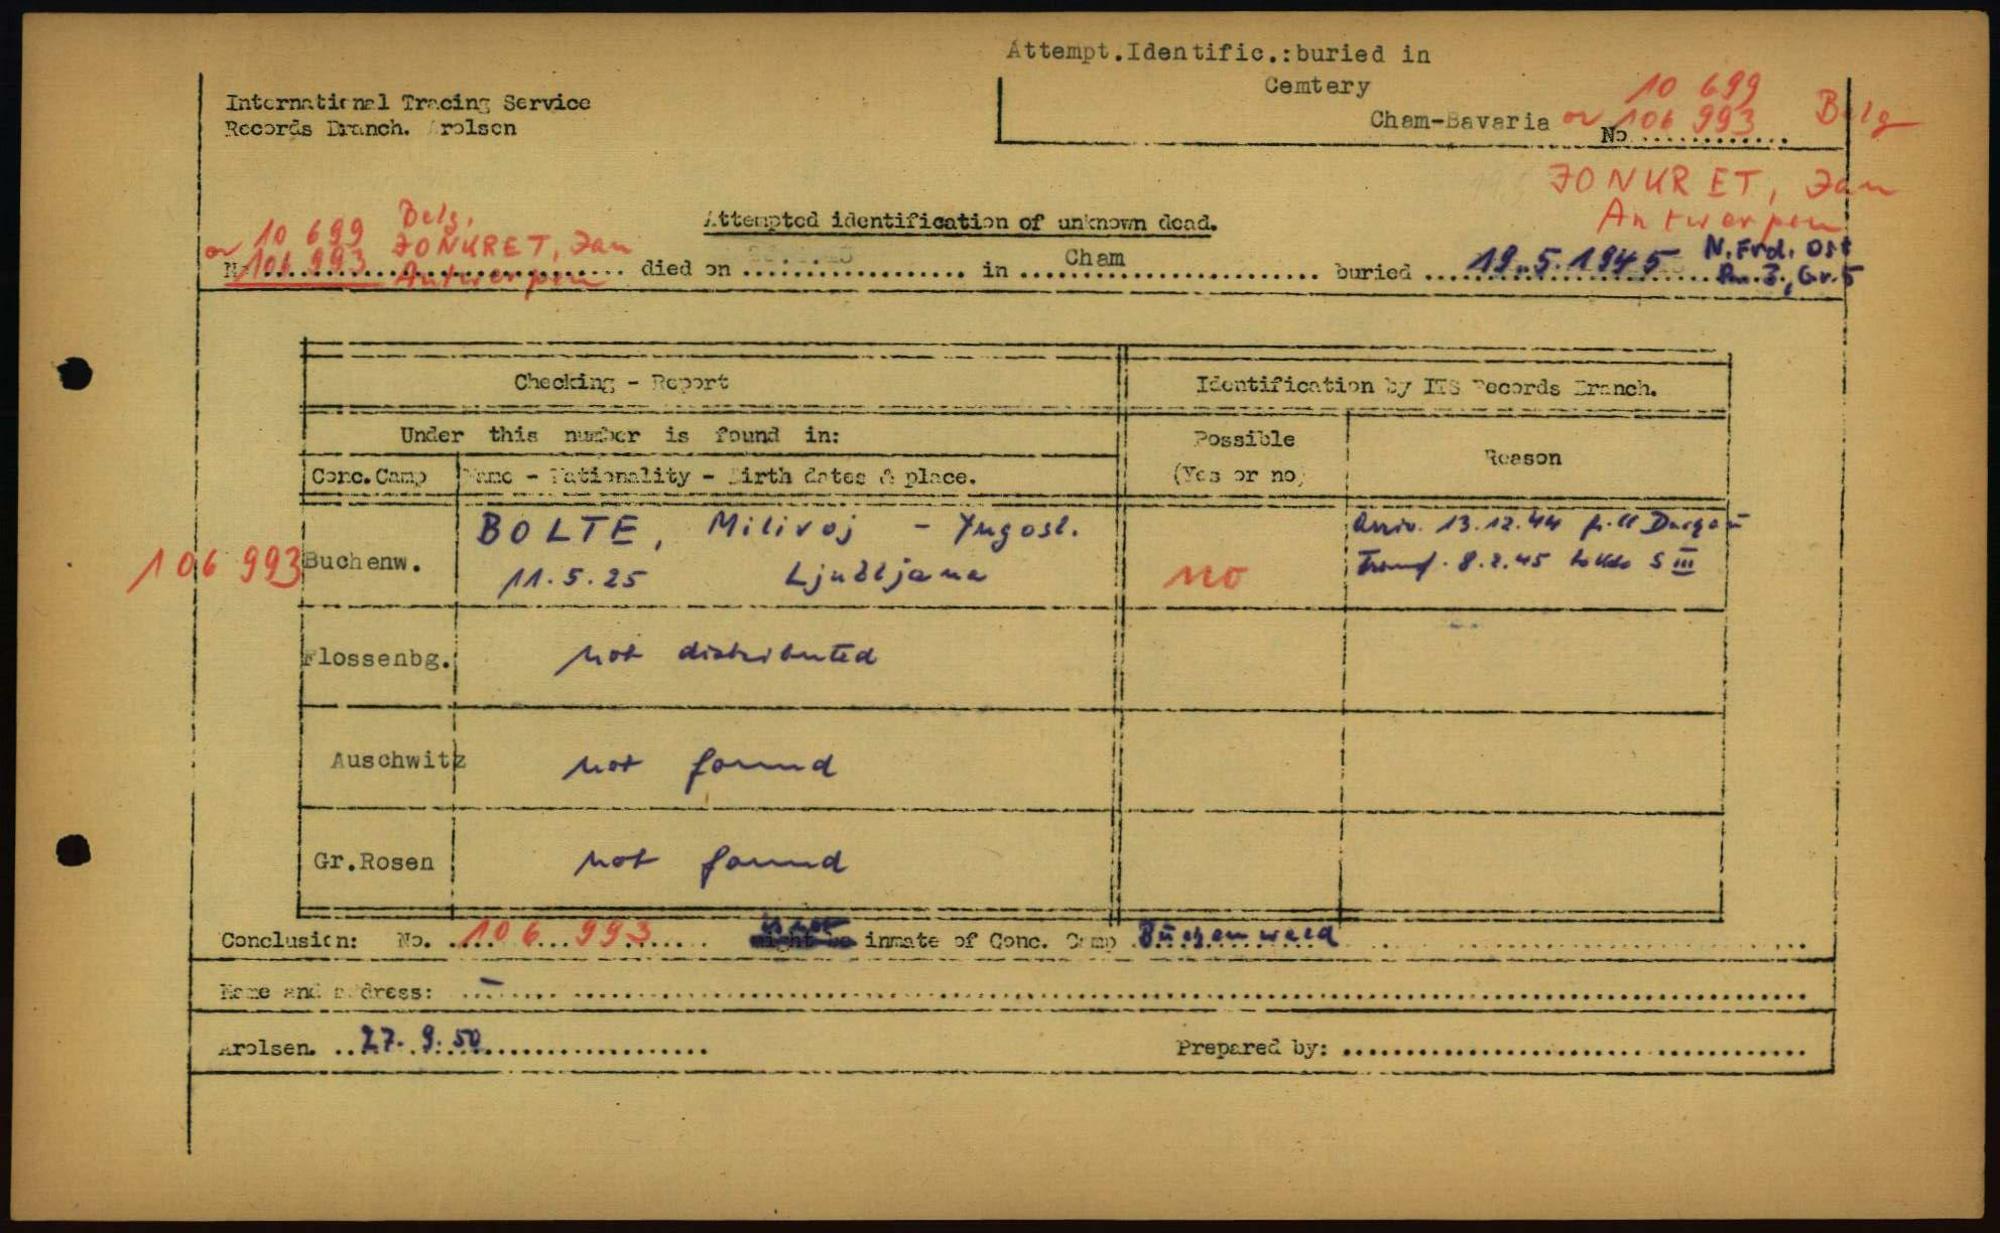 Attempt.Identific.:buried in
Cemtery
Cham-Bavaria
or 10 699
106 993
Belg
No..............
International Tracing Service
Records Branch. Arolsen
JONKRET, Jan
Antwerpen
Attempted identification of unknown dead.
or 10 699 Belg.
106 993 JONKRET, Jan
Antwerpen
No. died on in Cham buried 19.5.1945 N. Frd. Ost
Gr. 5
Checking - Report
Identification by ITS Records Branch.
Under this number is found in:
Possible
(Yes or no)
Reason
Conc.Camp
Name - Nationality - Birth dates & place.
106 993
Buchenw.
BOLTE, Milivoj - Yugosl.
11.5.25 Ljubljana
no
Arriv. 13.12.44 from
Transf. 8.2.45 S III
Flossenbg. not distributed
Auschwitz not found
Gr.Rosen not found
Conclusion: No. 106 993 is not might be inmate of Conc. Camp Buchenwald
Name and address: –
Arolsen. 27. 9. 50
Prepared by: